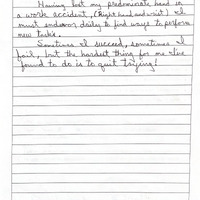 Having lost my predominate hand in
a work accident, (Right hand and wrist) I
must endeavor daily to find ways to perform
new task's.
Sometimes I succeed, sometimes I
fail, but the hardest thing for me I've
found to do is to quit trying!